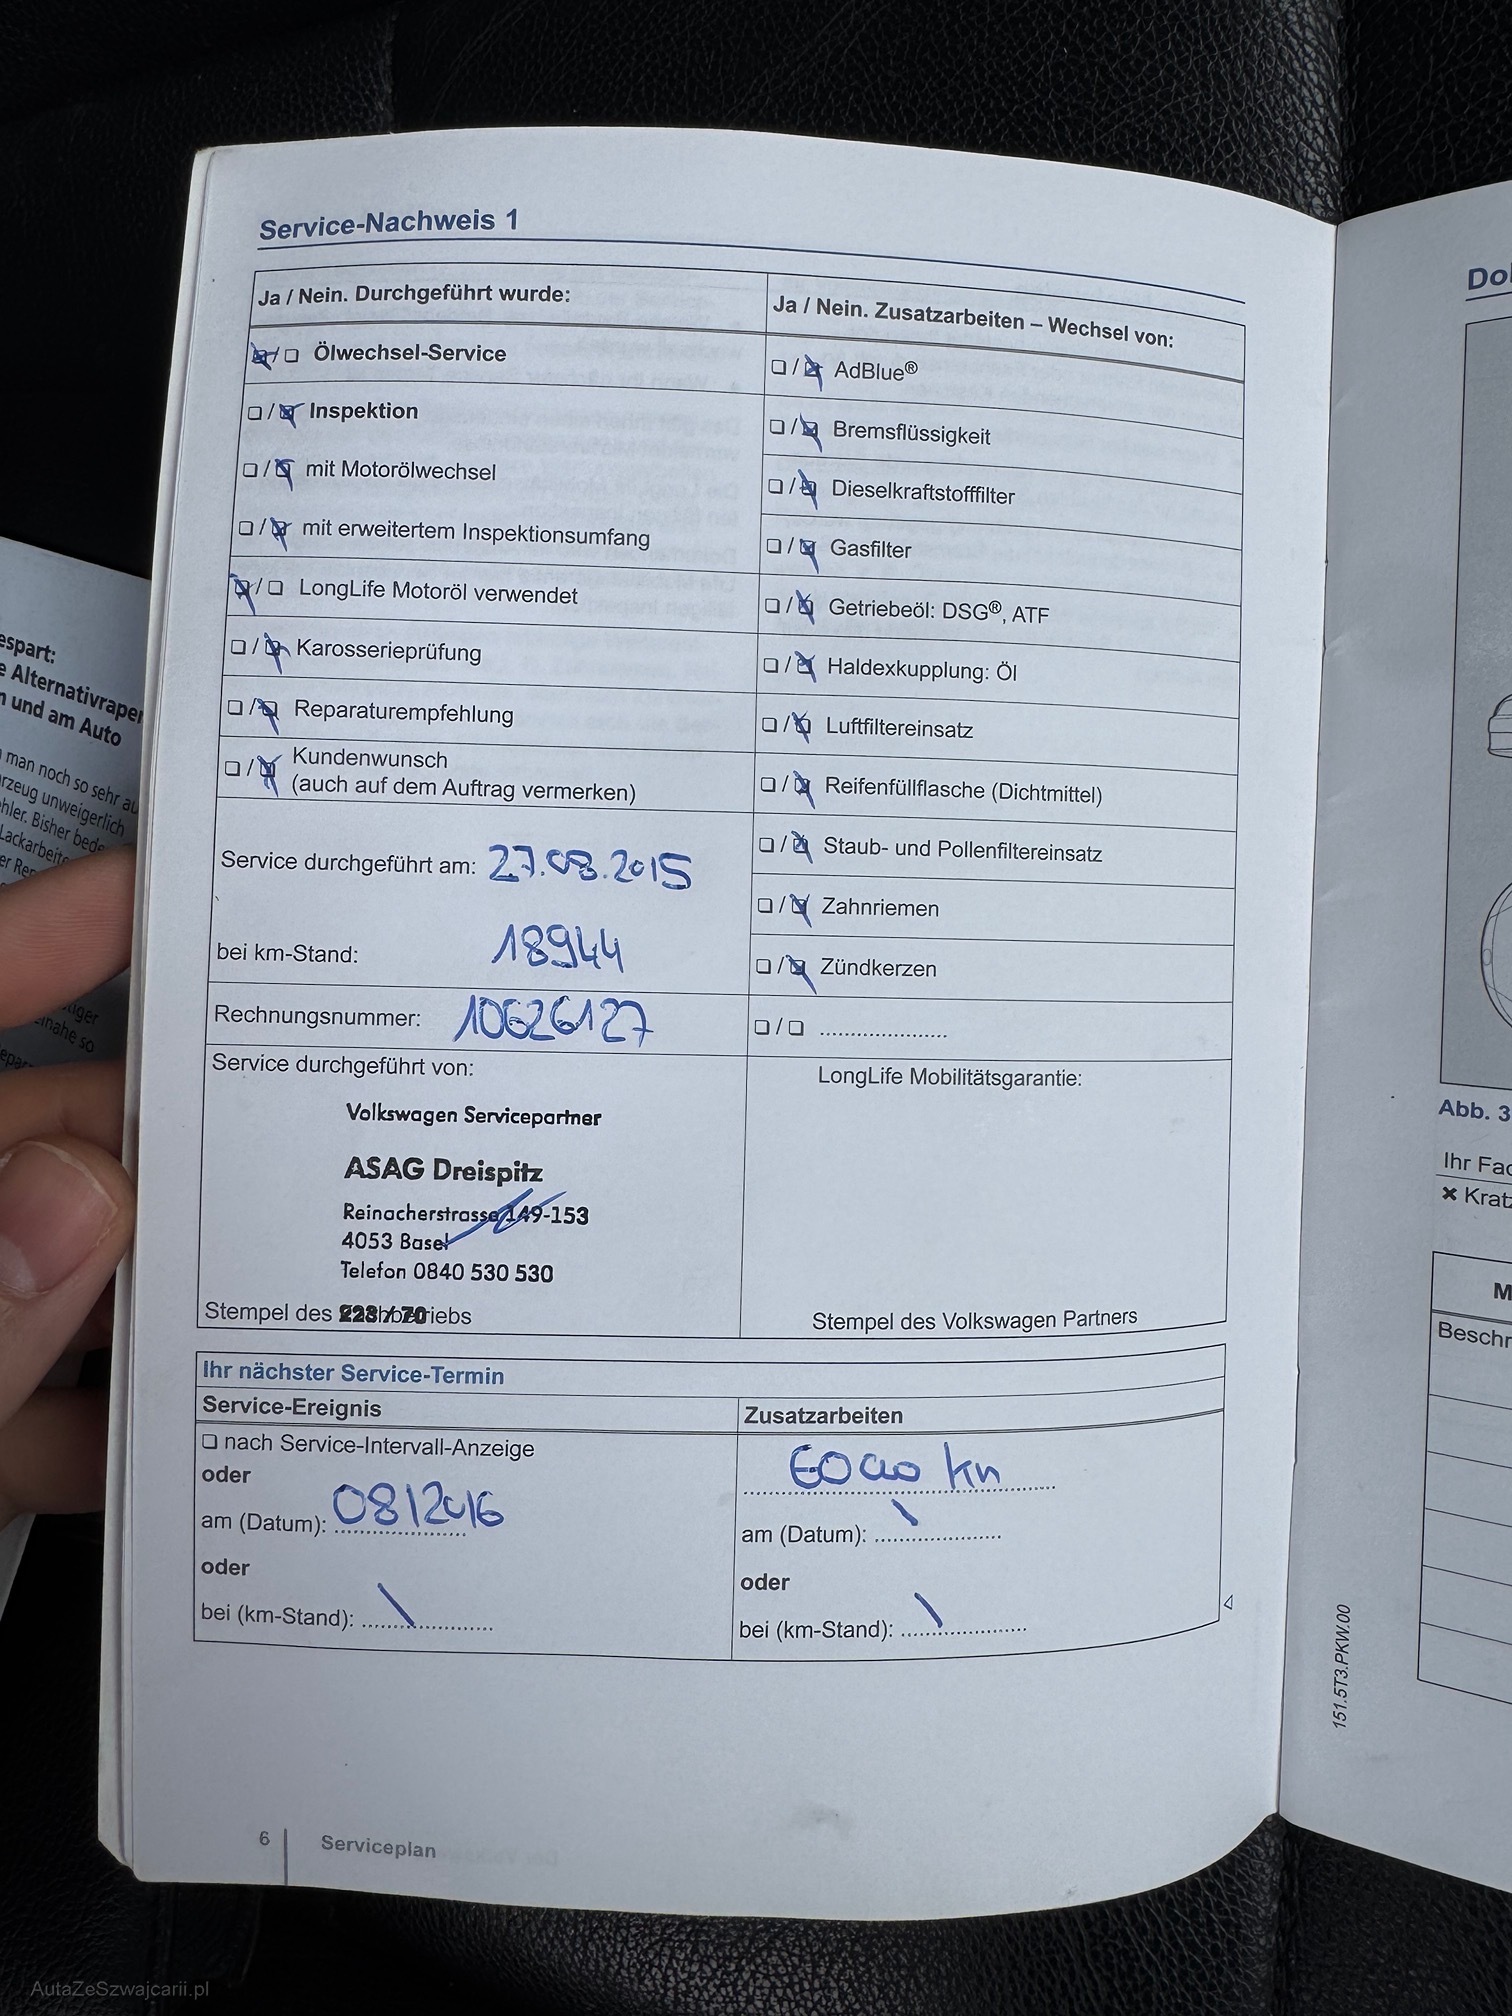 Service-Nachweis 1
Ja / Nein. Durchgeführt wurde:
☒/❏ Ölwechsel-Service
❏/☒ Inspektion
❏/☒ mit Motorölwechsel
❏/☒ mit erweitertem Inspektionsumfang
☒/❏ LongLife Motoröl verwendet
❏/☒ Karosserieprüfung
❏/☒ Reparaturempfehlung
❏/☒ Kundenwunsch
(auch auf dem Auftrag vermerken)
Service durchgeführt am: 27.08.2015
bei km-Stand: 18944
Rechnungsnummer: 10626127
Service durchgeführt von:
Volkswagen Servicepartner
ASAG Dreispitz
Reinacherstrasse 149-153
4053 Basel
Telefon 0840 530 530
223 / 70
Stempel des
Ja / Nein. Zusatzarbeiten – Wechsel von:
❏/☒ AdBlue®
❏/☒ Bremsflüssigkeit
❏/☒ Dieselkraftstofffilter
❏/☒ Gasfilter
❏/☒ Getriebeöl: DSG®, ATF
❏/☒ Haldexkupplung: Öl
❏/☒ Luftfiltereinsatz
❏/☒ Reifenfüllflasche (Dichtmittel)
❏/☒ Staub- und Pollenfiltereinsatz
❏/☒ Zahnriemen
❏/☒ Zündkerzen
❏/❏ .....................
LongLife Mobilitätsgarantie:
Stempel des Volkswagen Partners
Ihr nächster Service-Termin
Service-Ereignis
❏ nach Service-Intervall-Anzeige
oder
am (Datum): 08/2016
oder
bei (km-Stand): \
Zusatzarbeiten
60000 km
am (Datum): \
oder
bei (km-Stand): \
6 Serviceplan
151.5T3.PKW.00
espart:
e Alternativrepar
n und am Auto
man noch so sehr au
rzeug unweigerlich
hler. Bisher bede
Lackarbeite
er Rep
tiger
einahe so
epar
Dol
Abb. 3
Ihr Fac
✖ Kratz
M
Beschr
AutaZeSzwajcarii.pl